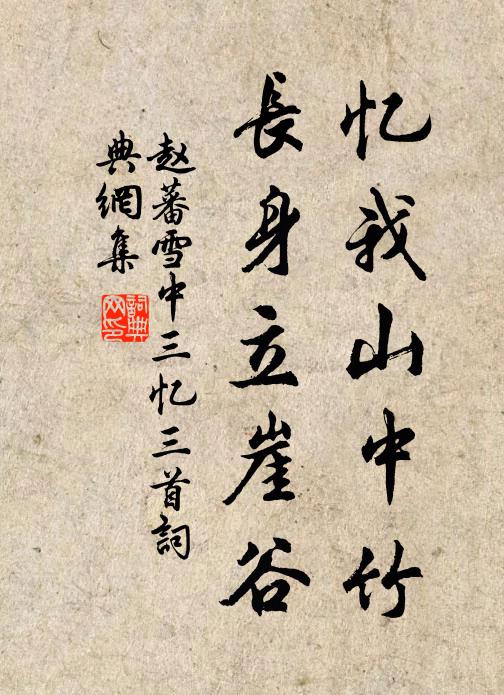 忆我山中竹
長身立崖谷
赵蕃雪中三忆三首詞
典網集
詞典
网印